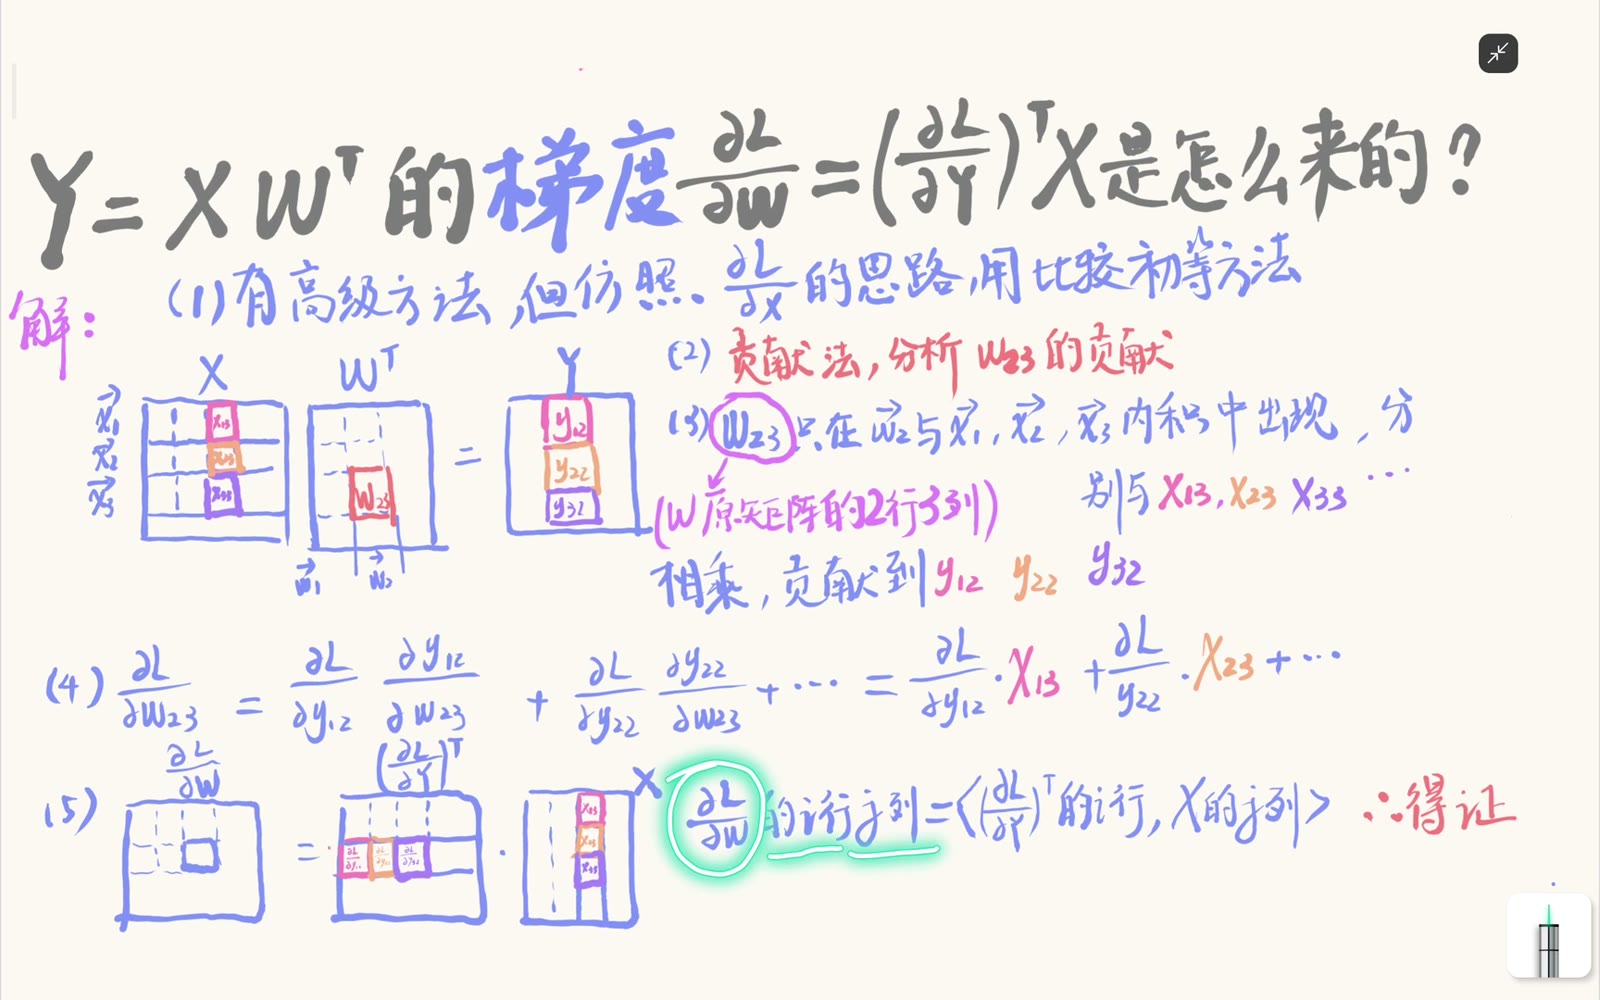 Y = X Wᵀ 的梯度 ∂L/∂W = (∂L/∂Y)ᵀ X 是怎么来的?
解:
(1) 有高级方法,但仿照. ∂L/∂x 的思路,用比较初等方法
(2) 贡献法,分析 W23 的贡献
X Wᵀ = Y
x⃗1
x⃗2
x⃗3
x13
x23
x33
W23
w⃗1 w⃗2
y12
y22
y32
(3) W23 只在 w⃗2 与 x⃗1, x⃗2, x⃗3 内积中出现,分
别与 X13, X23 X33 …
(W 原矩阵的2行3列)
相乘,贡献到 y12 y22 y32
(4) ∂L/∂W23 = ∂L/∂y12 ∂y12/∂W23 + ∂L/∂y22 ∂y22/∂W23 + … = ∂L/∂y12 · X13 + ∂L/y22 · X23 + …
(5) ∂L/∂W = (∂L/∂Y)ᵀ · X
∂L/∂W 的 i行 j列 = <(∂L/∂Y)ᵀ 的 i行, X的 j列> ∴得证